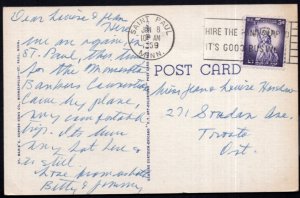 Dear Louise & Jean
Here
we are again, in
St. Paul, this time
for the
Bankers Convention
Came by plane,
very comfortable
trip. It's been
very hot here &
is still.
Love from us both
Betty & Jimmy
SAINT PAUL
JUN 8
AM
1959
MINN.
HIRE THE HANDICAPPED
IT'S GOOD BUSINESS
POST CARD
Miss Jean Louise
271 Ave
Toronto
Ont.